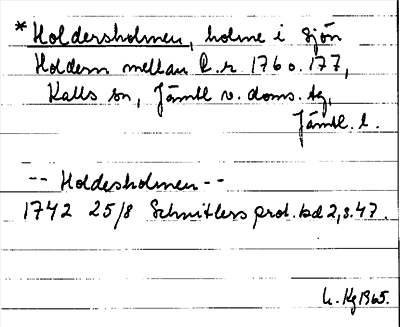 *Holdersholmen, holme i sjön
Holdern mellan R.r. 176 o. 177,
Kalls sn, Jämtl v. doms. tg,
Jämtl. l.
-- Holdesholmen --
1742 25/8 Schnitlers prot. bd 2, s. 47.
Hg 1965.